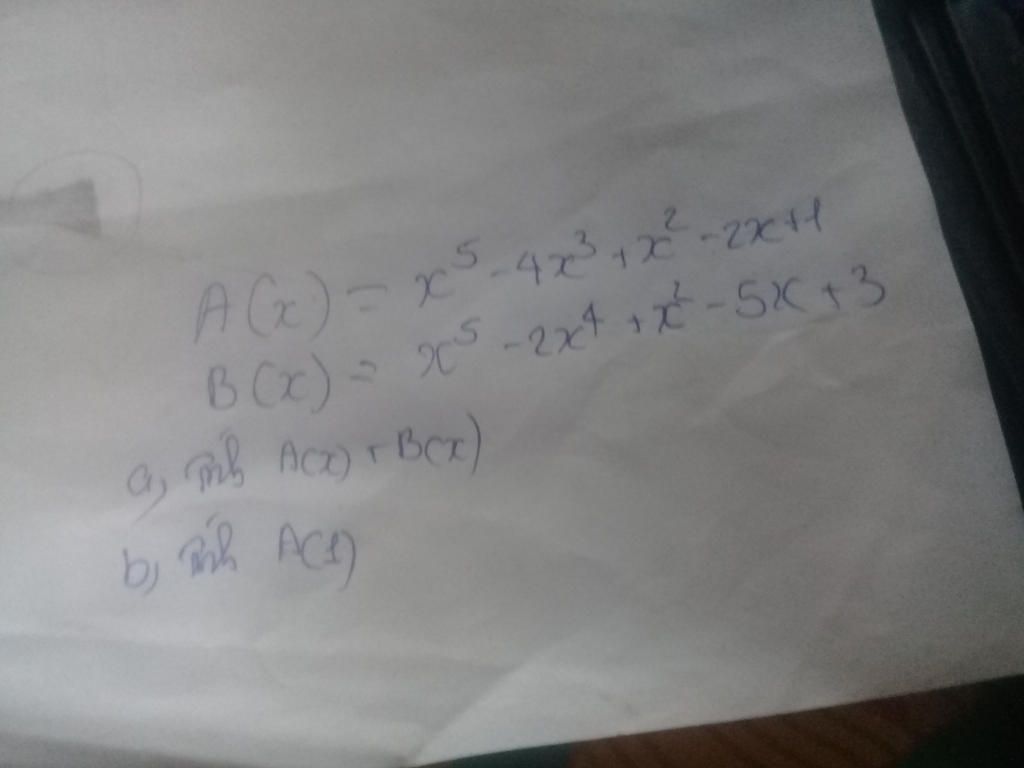 A(x) = x⁵ - 4x³ + x² - 2x + 1
B(x) = x⁵ - 2x⁴ + x² - 5x + 3
a, Tính A(x) + B(x)
b, Tính A(1)